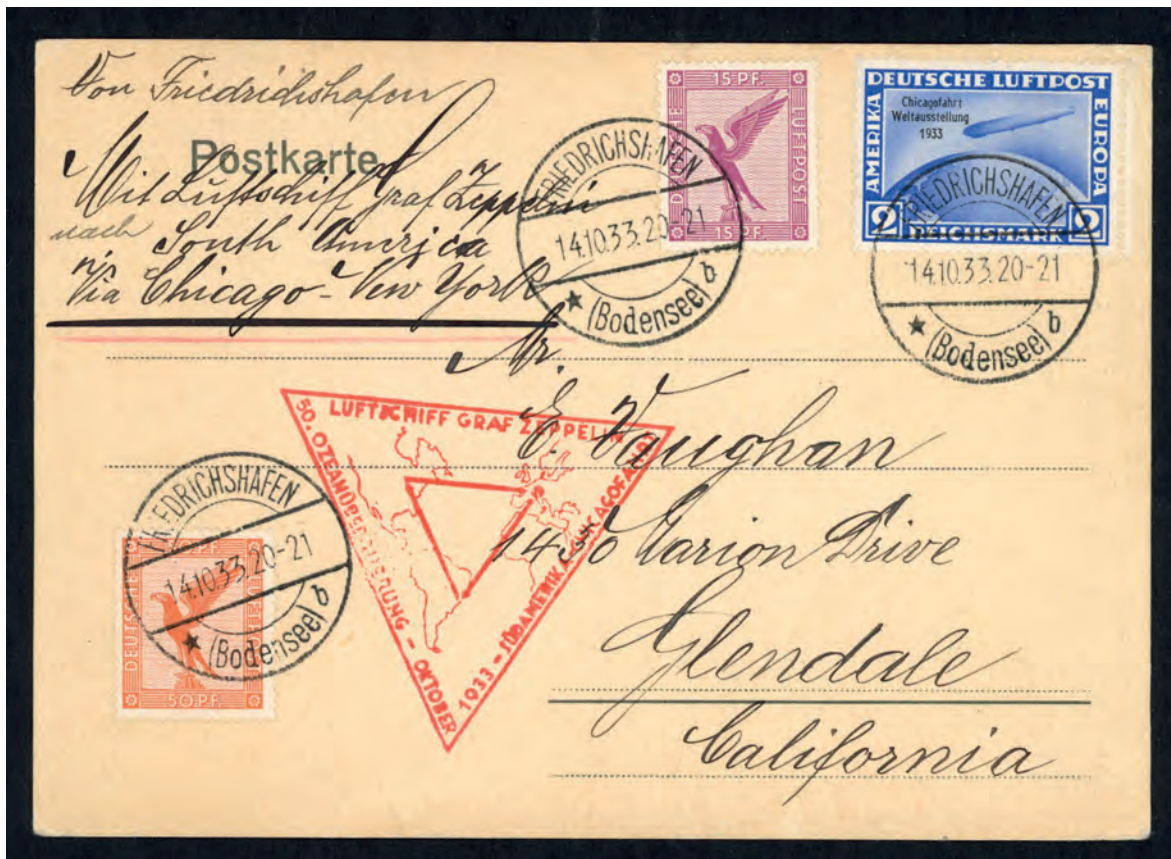 Von Friedrichshafen
Postkarte
Mit Luftschiff Graf Zeppelin
nach South America
via Chicago - New York
15 PF.
DEUTSCHE LUFTPOST
15 PF.
DEUTSCHE LUFTPOST
AMERIKA
EUROPA
Chicagofahrt
Weltausstellung
1933
2 REICHSMARK 2
FRIEDRICHSHAFEN
14.10.33.20-21
★ (Bodensee) b
FRIEDRICHSHAFEN
14.10.33.20-21
★ (Bodensee) b
Mr.
E. Vaughan
Drive
Glendale
California
LUFTSCHIFF GRAF ZEPPELIN
50. OZEANÜBERQUERUNG - OKTOBER
1933 - SÜDAMERIKA - CHICAGOFAHRT
FRIEDRICHSHAFEN
14.10.33.20-21
★ (Bodensee) b
DEUTSCHE
50 PF.